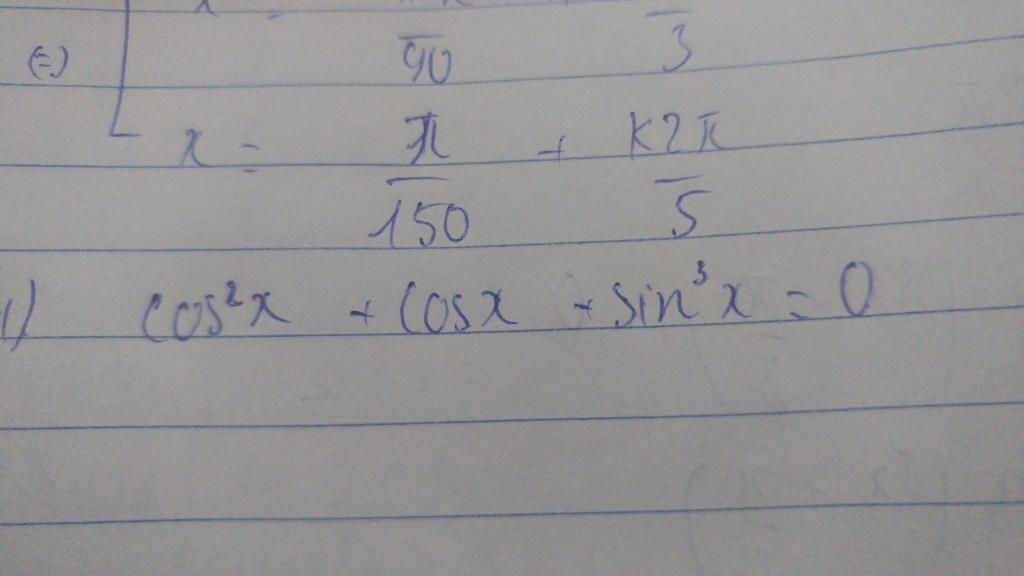 (=)
90 3
x = π/150 + k2π/5
1) cos²x + cosx + sin³x = 0